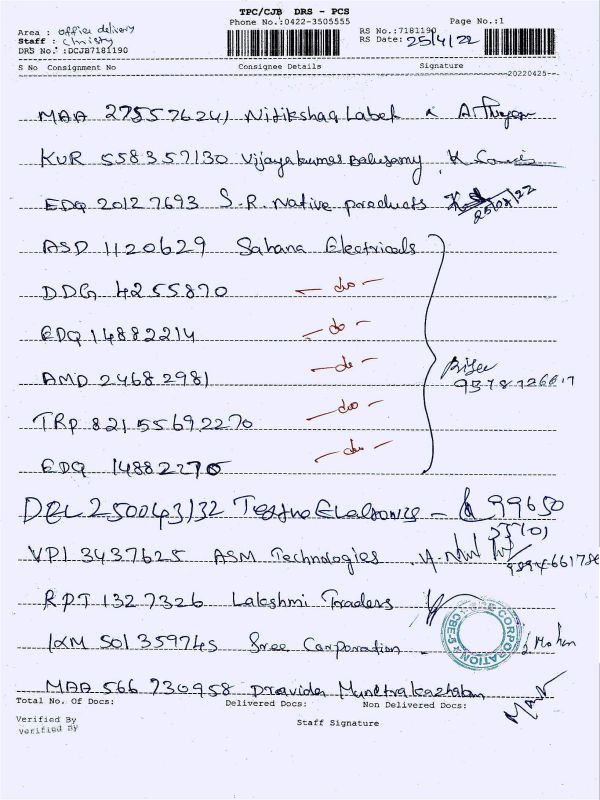 TPC/CJB DRS - PCS
Phone No.:0422-3505555 Page No.:1
Area : office delivery
Staff : Christy
DRS No.:DCJB7181190
RS No.:7181190
RS Date: 25/4/22
S No Consignment No Consignee Details Signature
20220425
MAA 275576241 Nitikshaa Label
KUR 558357130 Vijayakumar Balusamy
EDQ 20127693 S.R. Native products 25/04/22
ASD 1120629 Sahana Electricals
DDG 4255870 - do -
EDQ 14882214 - do -
AMD 24682981 - do -
TRP 82155692270 - do -
EDQ 14882270 - do -
DEL 250043132 99650
VPI 3437625 ASM Technologies
RPT 1327326 Lakshmi Traders
IXM 501359745 Sree Corporation - Mohan
CORPORATION
CBE-5
MAA 566730958 Dravida Munetrakazhakam
Total No. Of Docs: Delivered Docs: Non Delivered Docs:
Verified By Staff Signature
Verified By